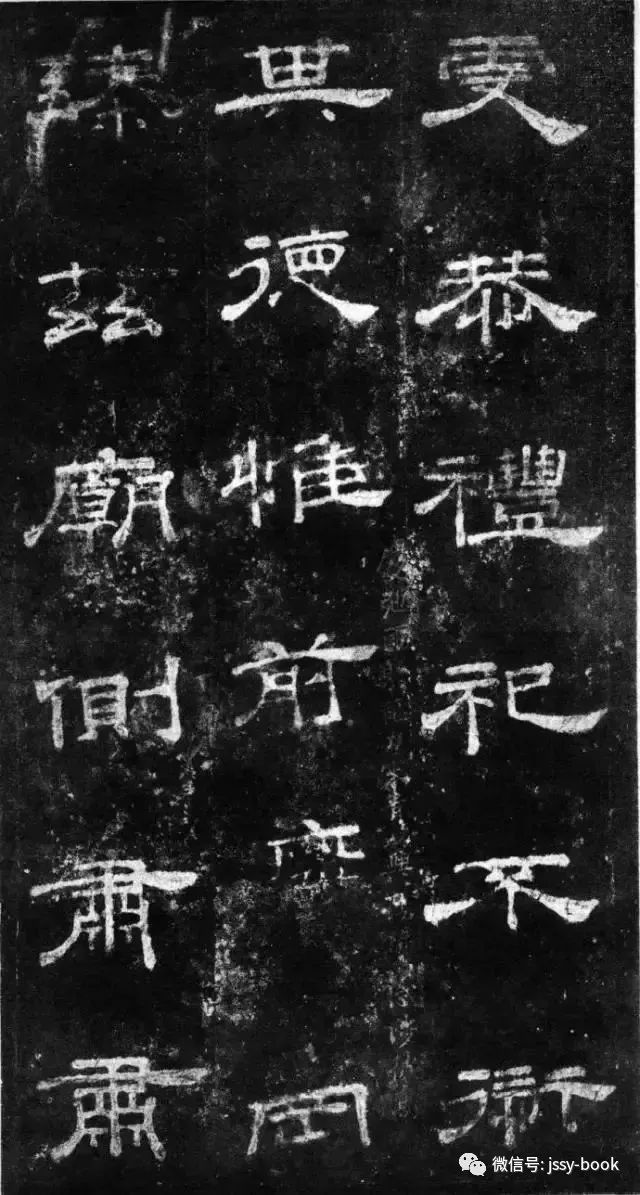 虔恭禮祀不愆
其德惟前廢岡
臻兹廟側肅肅
微信号: jssy-book